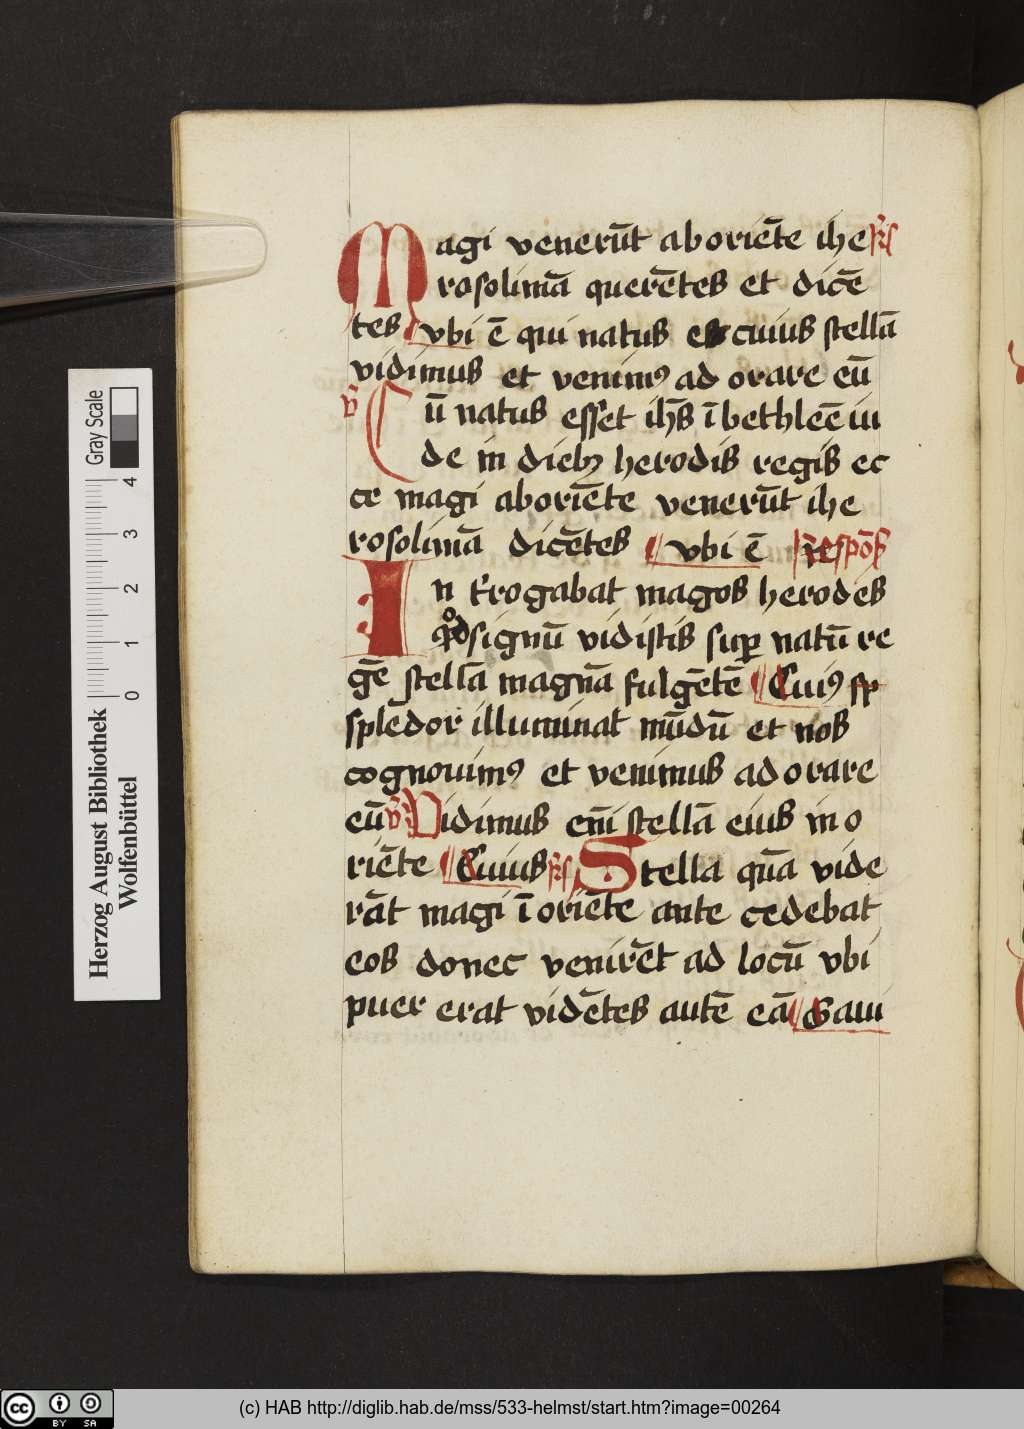 Magi venerūt aboriēte ihe
rosolimā querētes et dicē
tes vbi ē qui natus es cuius stellā
vidimus et venimꝰ ad orare eū
Cū natus esset ih̄s ī bethleē iu
de in diebꝫ herodis regis ec
ce magi aboriēte venerūt ihe
rosolimā dicētes vbi ē Respōs
In trogabat magos herodes
qͦd signū vidistis suꝑ natū re
gē stellā magnā fulgētē Cuiꝰ
splēdor illuminat mūdū et nos
cognouimꝰ et venimus ad orare
eū Vidimus em̄ stellā eius in o
riēte Cuius Stella quā vide
rāt magi ī oriēte ante cedebat
eos donec venirēt ad locū vbi
puer erat vidētes autē eā Gaui
Gray Scale
0 1 2 3 4
Herzog August Bibliothek
Wolfenbüttel
cc BY SA
(c) HAB http://diglib.hab.de/mss/533-helmst/start.htm?image=00264